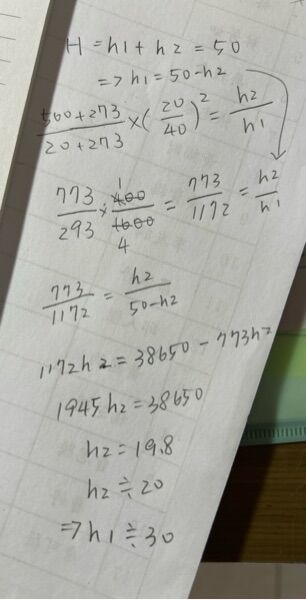 H = h1 + h2 = 50
=> h1 = 50 - h2
500+273/20+273 × (20/40)² = h2/h1
773/293 × 400/1600 1/4 = 773/1172 = h2/h1
773/1172 = h2/50-h2
1172h2 = 38650 - 773h2
1945h2 = 38650
h2 = 19.8
h2 ≒ 20
=> h1 ≒ 30